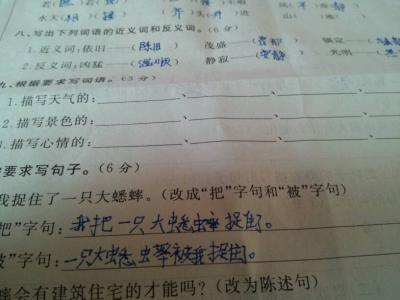 水天相接 芥 舟进 山(
八、写出下列词语的近义词和反义词。(6分)
1.近义词:依旧——(陈旧) 茂盛——( ) 镇定——(
2.反义词:凶猛——(温顺) 静寂——(安静) 光明——(
九、根据要求写词语。(3分)
1.描写天气的: 、 、 、
2.描写景色的: 、 、 、
3.描写心情的: 、 、
要求写句子。(6分)
我捉住了一只大蟋蟀。(改成“把”字句和“被”字句)
把”字句:我把一只大蟋蟀捉住了。
被”字句:一只大蟋蟀被我捉住。
蟀会有建筑住宅的才能吗?(改为陈述句)